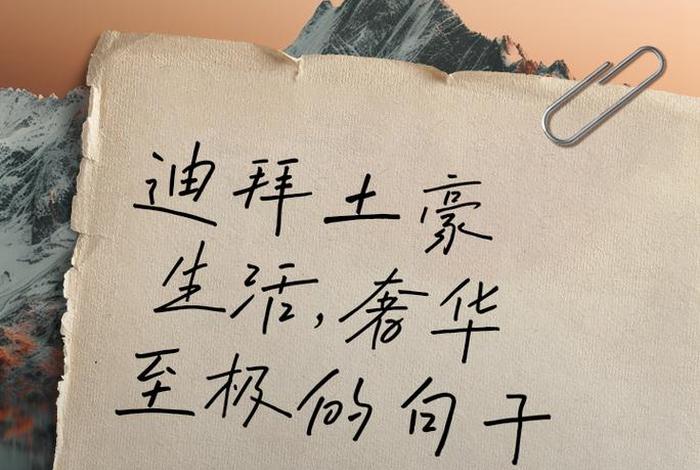 迪拜土豪
生活,奢华
至极的句子